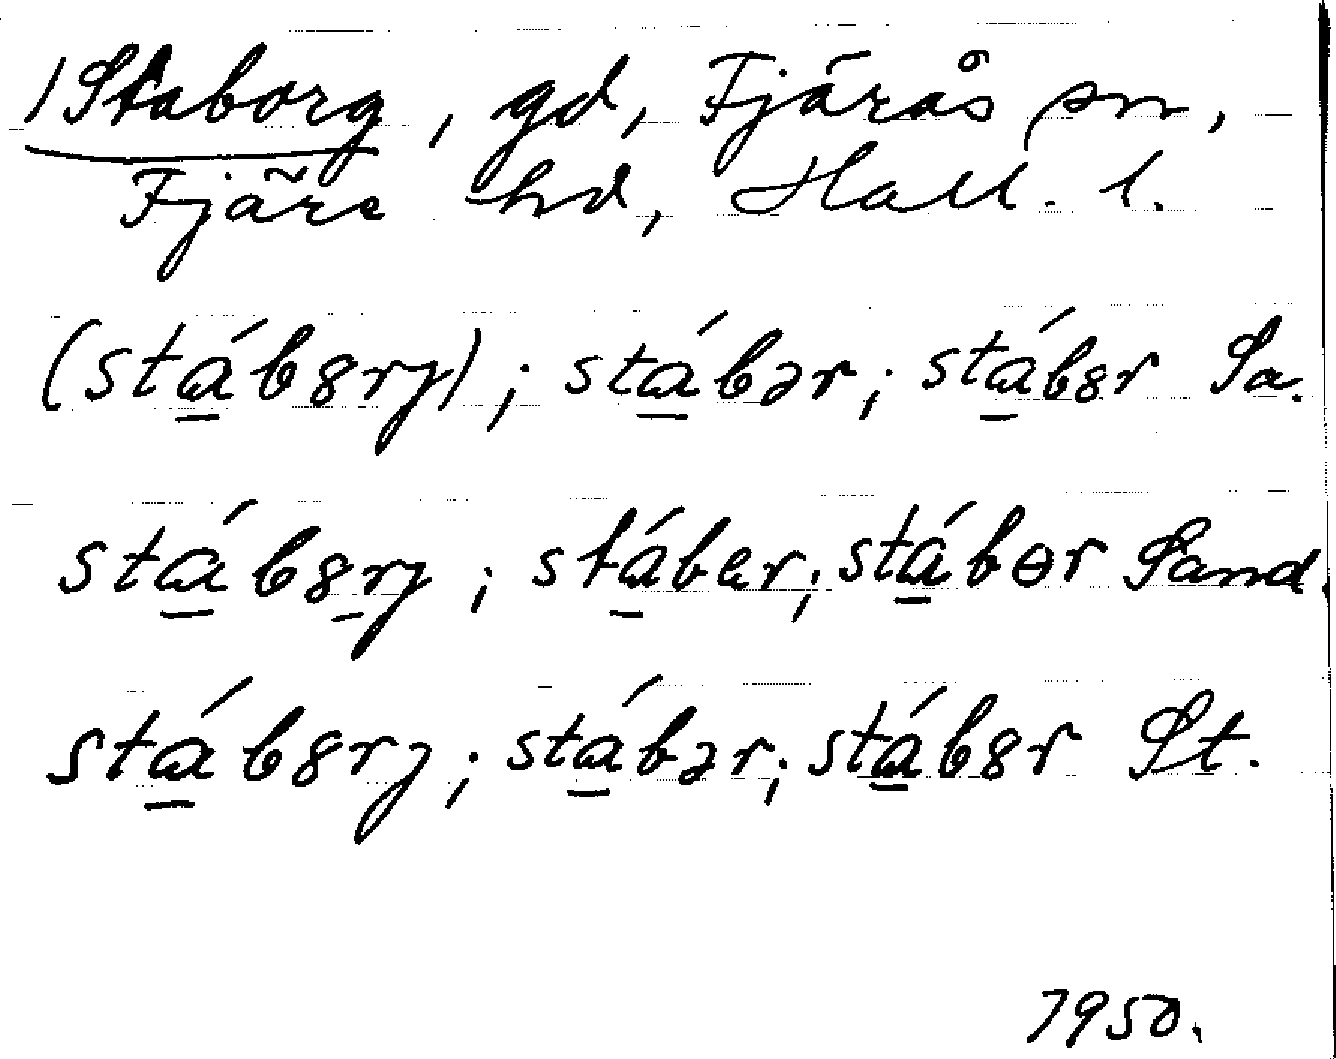 /Staborg, gd, Fjärås sn,
Fjäre hd, Hall. l.
(stábȣrj); stábər; stábȣr Sa.
stábȣrj; stáber; stábɵr Sand.
stábȣrj; stábər; stábȣr St.
1950.